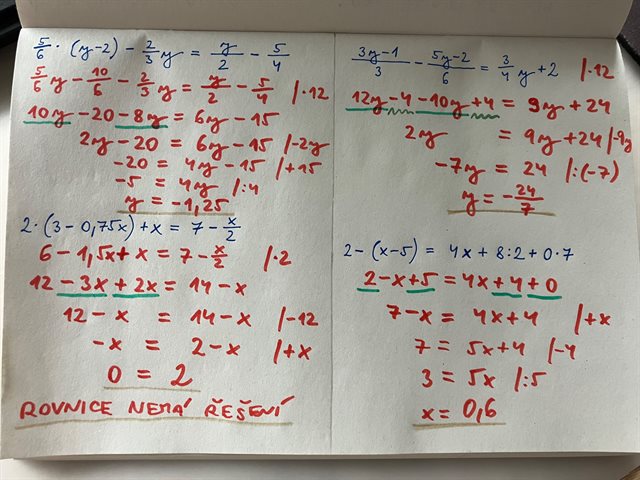 5/6 · (y-2) - 2/3 y = y/2 - 5/4
5/6 y - 10/6 - 2/3 y = y/2 - 5/4 /·12
10y - 20 - 8y = 6y - 15
2y - 20 = 6y - 15 /-2y
-20 = 4y - 15 /+15
-5 = 4y /:4
y = -1,25
2·(3 - 0,75x) + x = 7 - x/2
6 - 1,5x + x = 7 - x/2 /·2
12 - 3x + 2x = 14 - x
12 - x = 14 - x /-12
-x = 2 - x /+x
0 = 2
ROVNICE NEMÁ ŘEŠENÍ
3y-1/3 - 5y-2/6 = 3/4 y + 2 /·12
12y - 4 - 10y + 4 = 9y + 24
2y = 9y + 24 /-9y
-7y = 24 /:(-7)
y = -24/7
2 - (x-5) = 4x + 8:2 + 0·7
2 - x + 5 = 4x + 4 + 0
7 - x = 4x + 4 /+x
7 = 5x + 4 /-4
3 = 5x /:5
x = 0,6